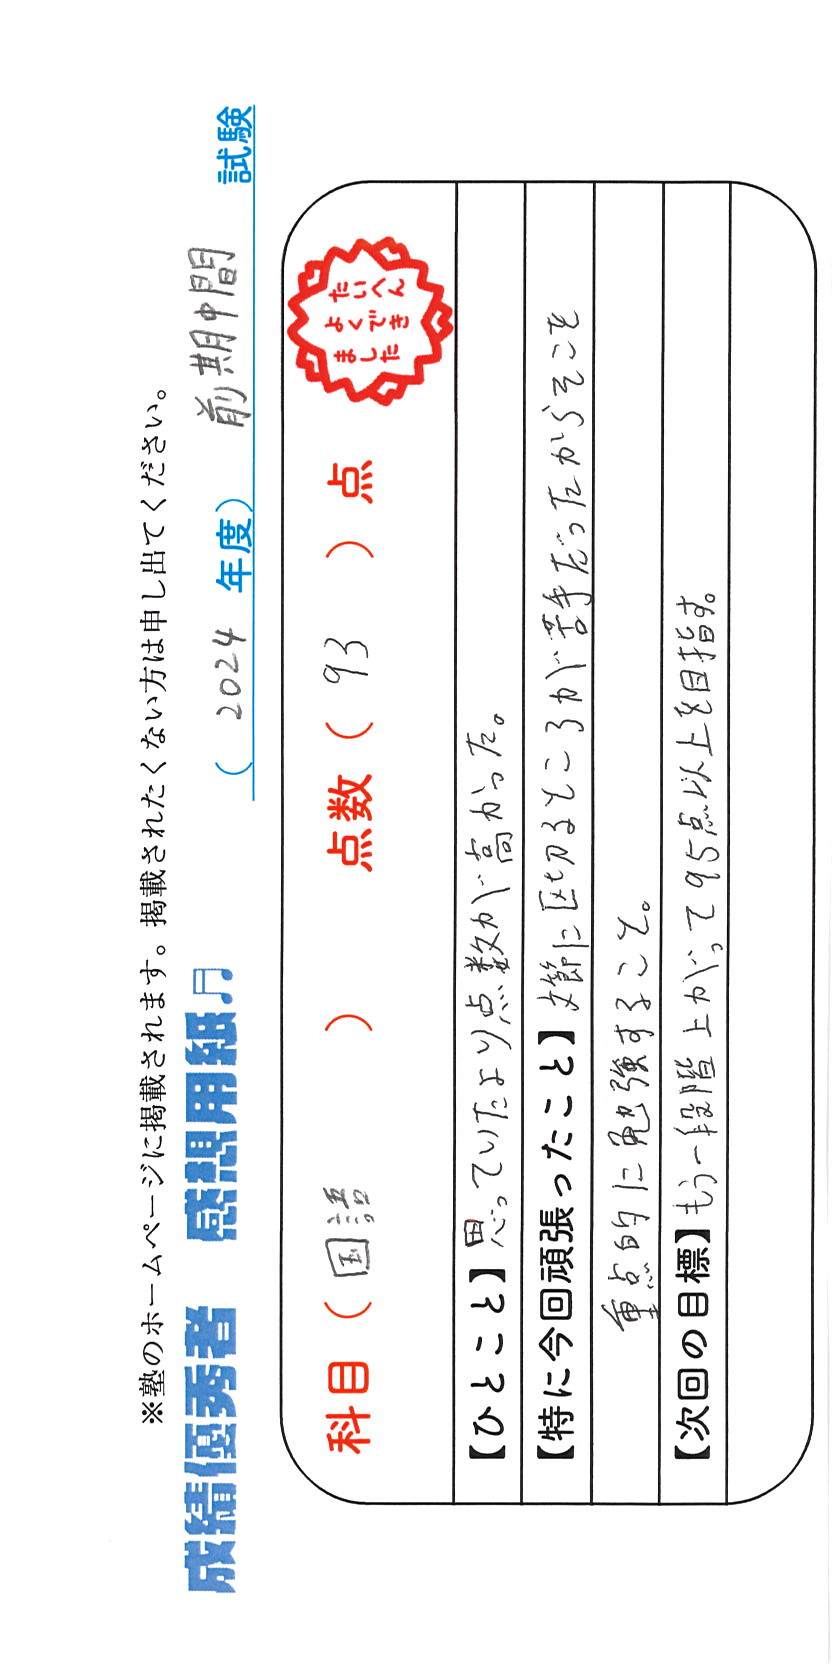 ※塾のホームページに掲載されます。掲載されたくない方は申し出てください。
成績優秀者 感想用紙♫ （ 2024 年度） 前期中間 試験
科目（ 国語 ） 点数（ 93 ）点
たいへん
よくでき
ました
【ひとこと】思っていたより点数が高かった。
【特に今回頑張ったこと】文節に区切るところが苦手だったからそこを
重点的に勉強すること。
【次回の目標】もう一段階上がって95点以上を目指す。